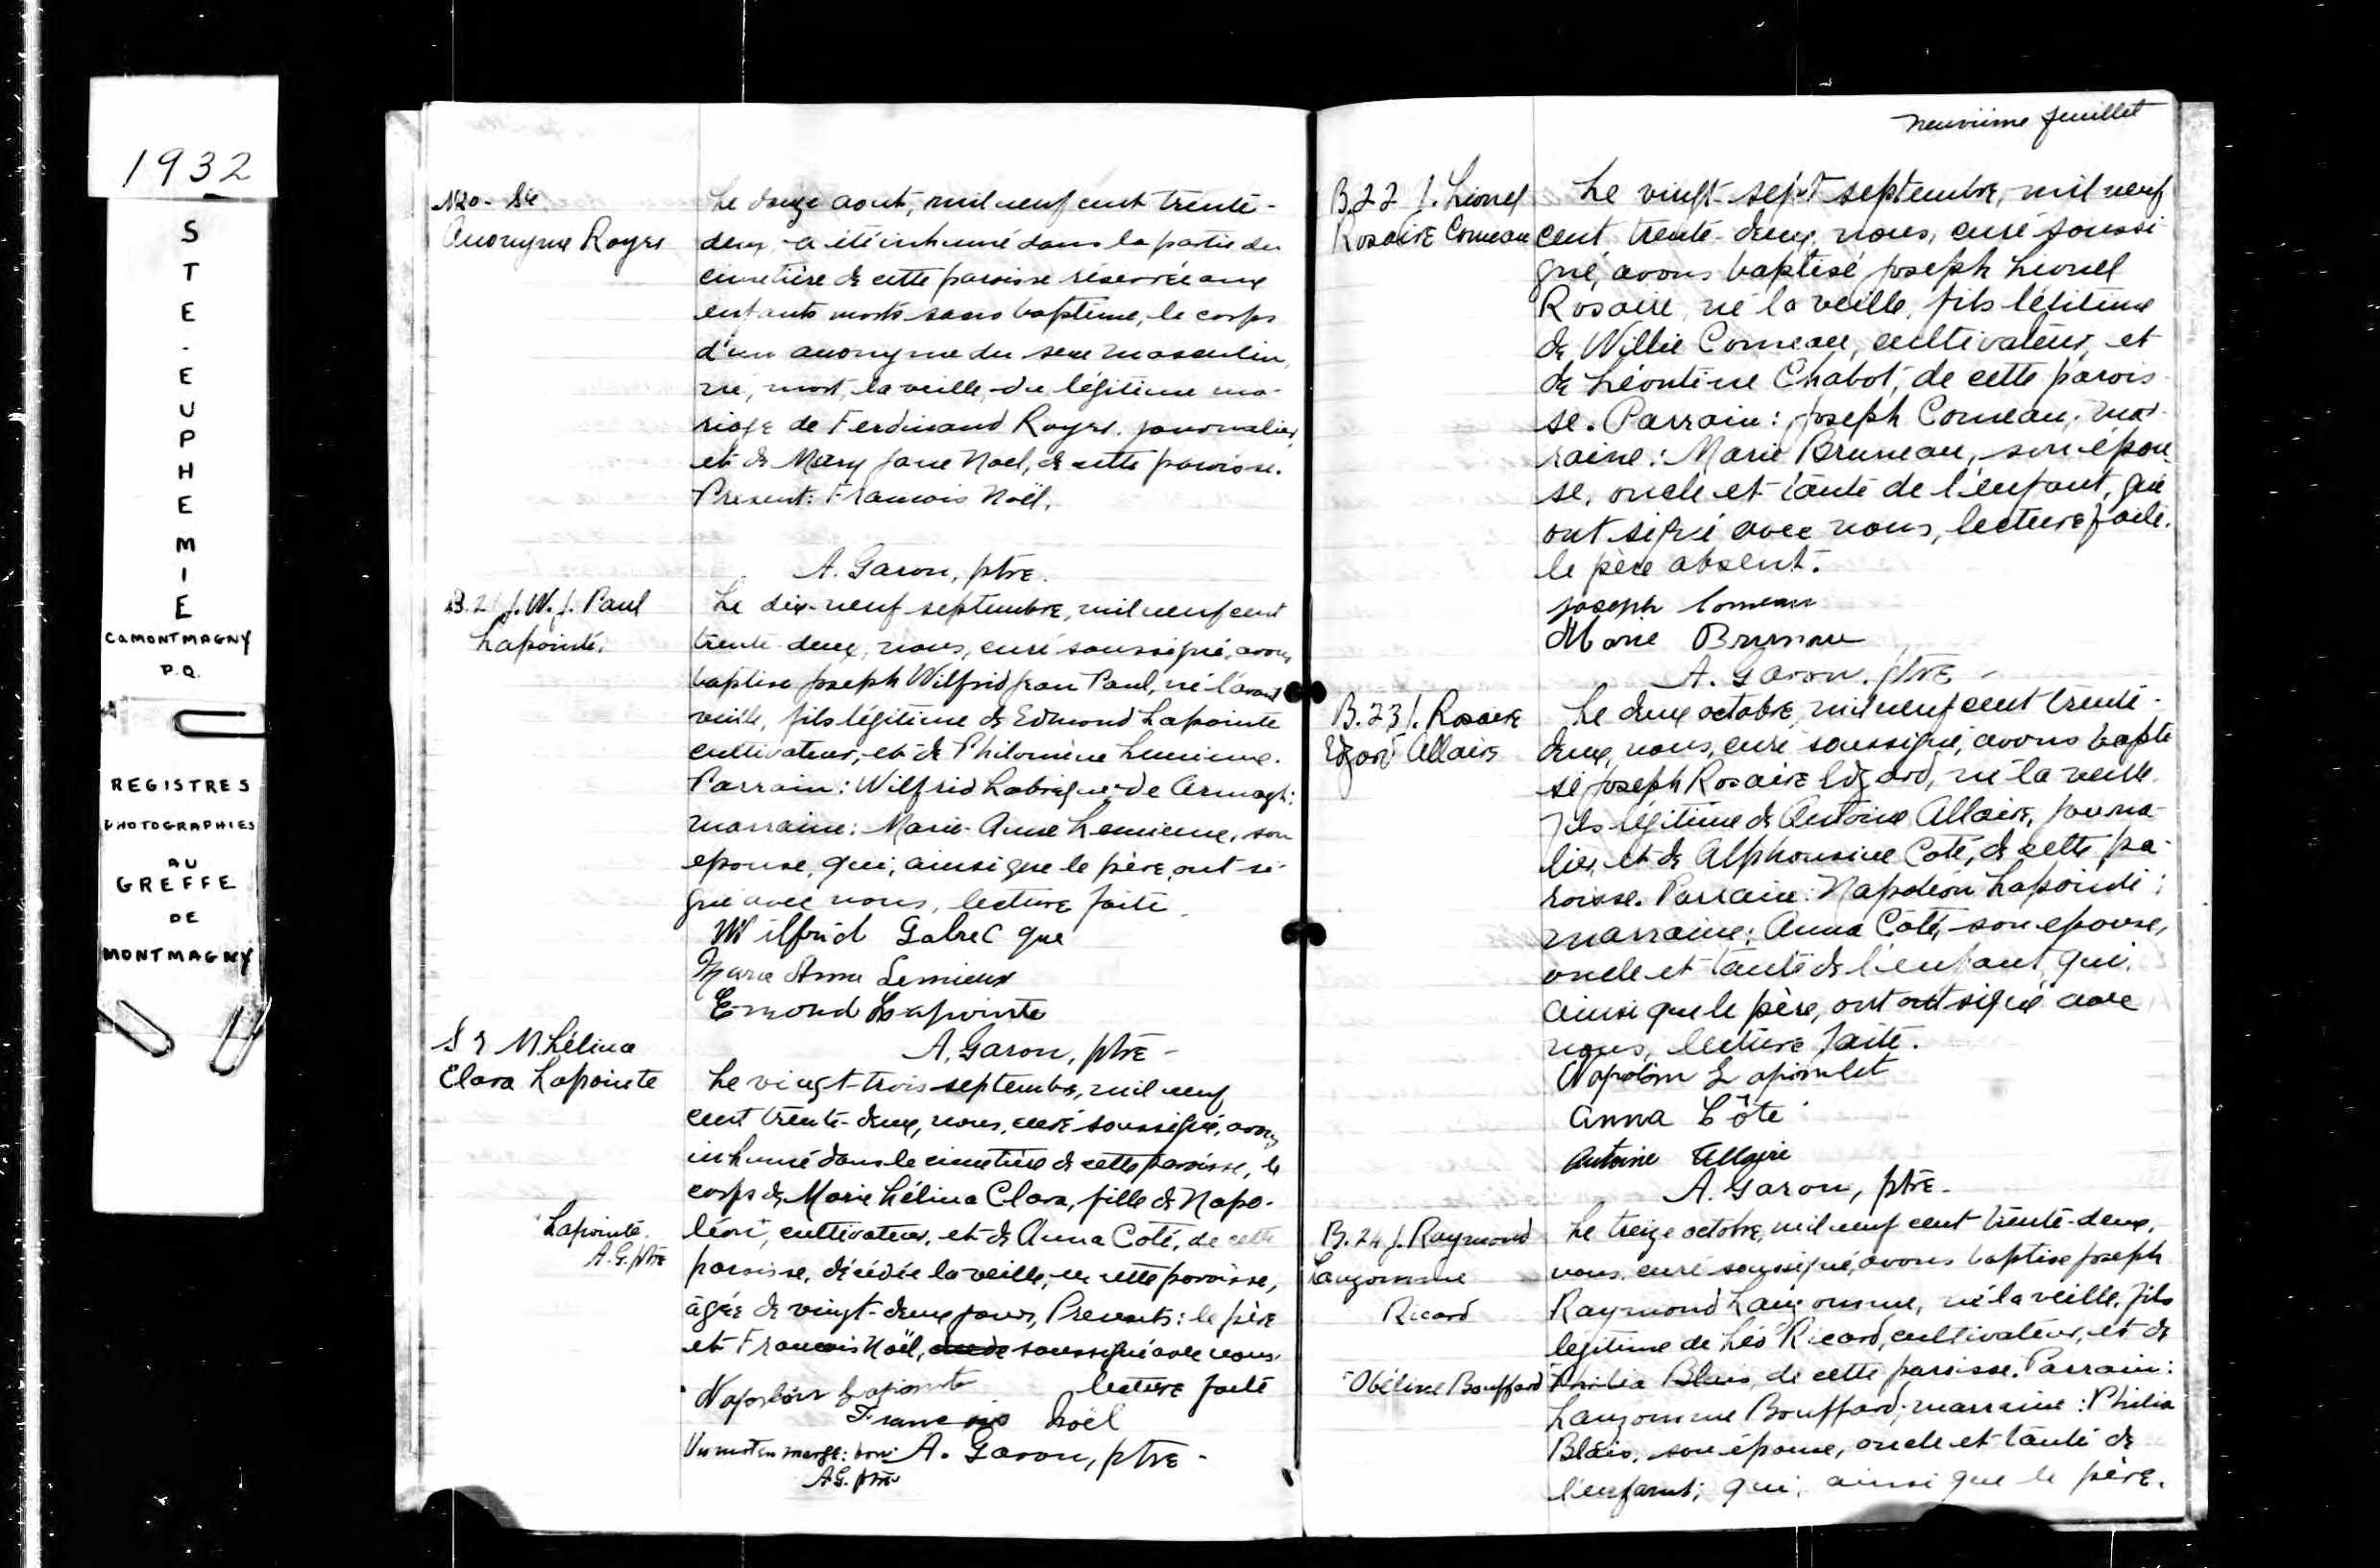 1932
STE-EUPHEMIE
CO MONTMAGNY
P.Q.
REGISTRES
PHOTOGRAPHIES
AU
GREFFE
DE
MONTMAGNY
Anonyme Royer
Le douze aout, mil neuf cent trente-
deux, a été inhumé dans la partie du
cimetière de cette paroisse réservée aux
enfants morts sans baptême, le corps
d'un anonyme du sexe masculin,
né, mort, la veille, du légitime ma-
riage de Ferdinand Royer, journalier,
et de Mary Jane Noel, de cette paroisse.
Present: Francois Noël.
A. Garon, ptre.
B.21 J. W. J. Paul
Lapointe.
Le dix-neuf septembre, mil neuf cent
trente-deux, nous, curé soussigné, avons
baptise Joseph Wilfrid Jean Paul, né l'avant
veille, fils légitime de Edmond Lapointe
cultivateur, et de Philomène Lemieux.
Parrain: Wilfrid Labrecque de Armagh;
marraine: Marie-Anne Lemieux, son
epouse, qui, ainsi que le père, ont si-
gné avec nous, lecture faite.
Wilfrid Labrec que
Marie Anna Lemieux
Emond Lapointe
A. Garon, ptre -
S M. Lélina
Clara Lapointe
Le vingt-trois septembre, mil neuf
cent trente-deux, nous, curé soussigné, avons
inhumé dans le cimetière de cette paroisse, le
corps de Marie Lélina Clara, fille de Napo-
Lapointe.
A.G. ptre
léon, cultivateur, et de Anna Coté, de cette
paroisse, décédée la veille, en cette paroisse,
âgée de vingt-deux jours, Presents: le père
et Francois Noël, soussigné avec nous.
lecture faite
Napoléon Lapointe
Francois Noël
Un mot en marge: bon A. Garon, ptre -
A.G. ptre
neuvième feuillet
B.22 J. Lionel
Rosaire Comeau
Le vingt-sept septembre, mil neuf
cent trente-deux, nous, curé soussi
gné, avons baptisé Joseph Lionel
Rosaire, né la veille, fils légitime
de Willie Comeau, cultivateur, et
de Léontine Chabot, de cette parois-
se. Parrain: Joseph Comeau; mar-
raine: Marie Bruneau, son epou-
se, oncle et tante de l'enfant, qui
ont signé avec nous, lecture faite.
le père absent.
Joseph Comeau
Marie Bruneau
A. Garon, ptre -
B.23 J. Rosaire
Edgard Allaire
Le deux octobre, mil neuf cent trente-
deux, nous, curé soussigné, avons bapti
sé Joseph Rosaire Edgard, né la veille.
fils légitime de Antoine Allaire, journa-
lier, et de Alphonsine Coté, de cette pa-
roisse. Parrain: Napoléon Lapointe;
marraine: Anna Côté, son epouse,
oncle et tante de l'enfant, qui,
ainsi que le père, ont ont signé avec
nous, lecture faite.
Napoléon Lapointe
Anna Côte
Antoine Allaire
A. Garon, ptre -
B.24 J. Raymond
Lauzomme
Ricard
Le treize octobre, mil neuf cent trente-deux,
nous, curé soussigné, avons baptise Joseph
Raymond Lauzomme, né la veille, fils
legitime de Léo Ricard, cultivateur, et de
Obéline Bouffard
Philia Blais, de cette paroisse. Parrain:
Lauzomme Bouffard; marraine: Philia
Blais, son épouse, oncle et tante de
l'enfant; qui, ainsi que le père.